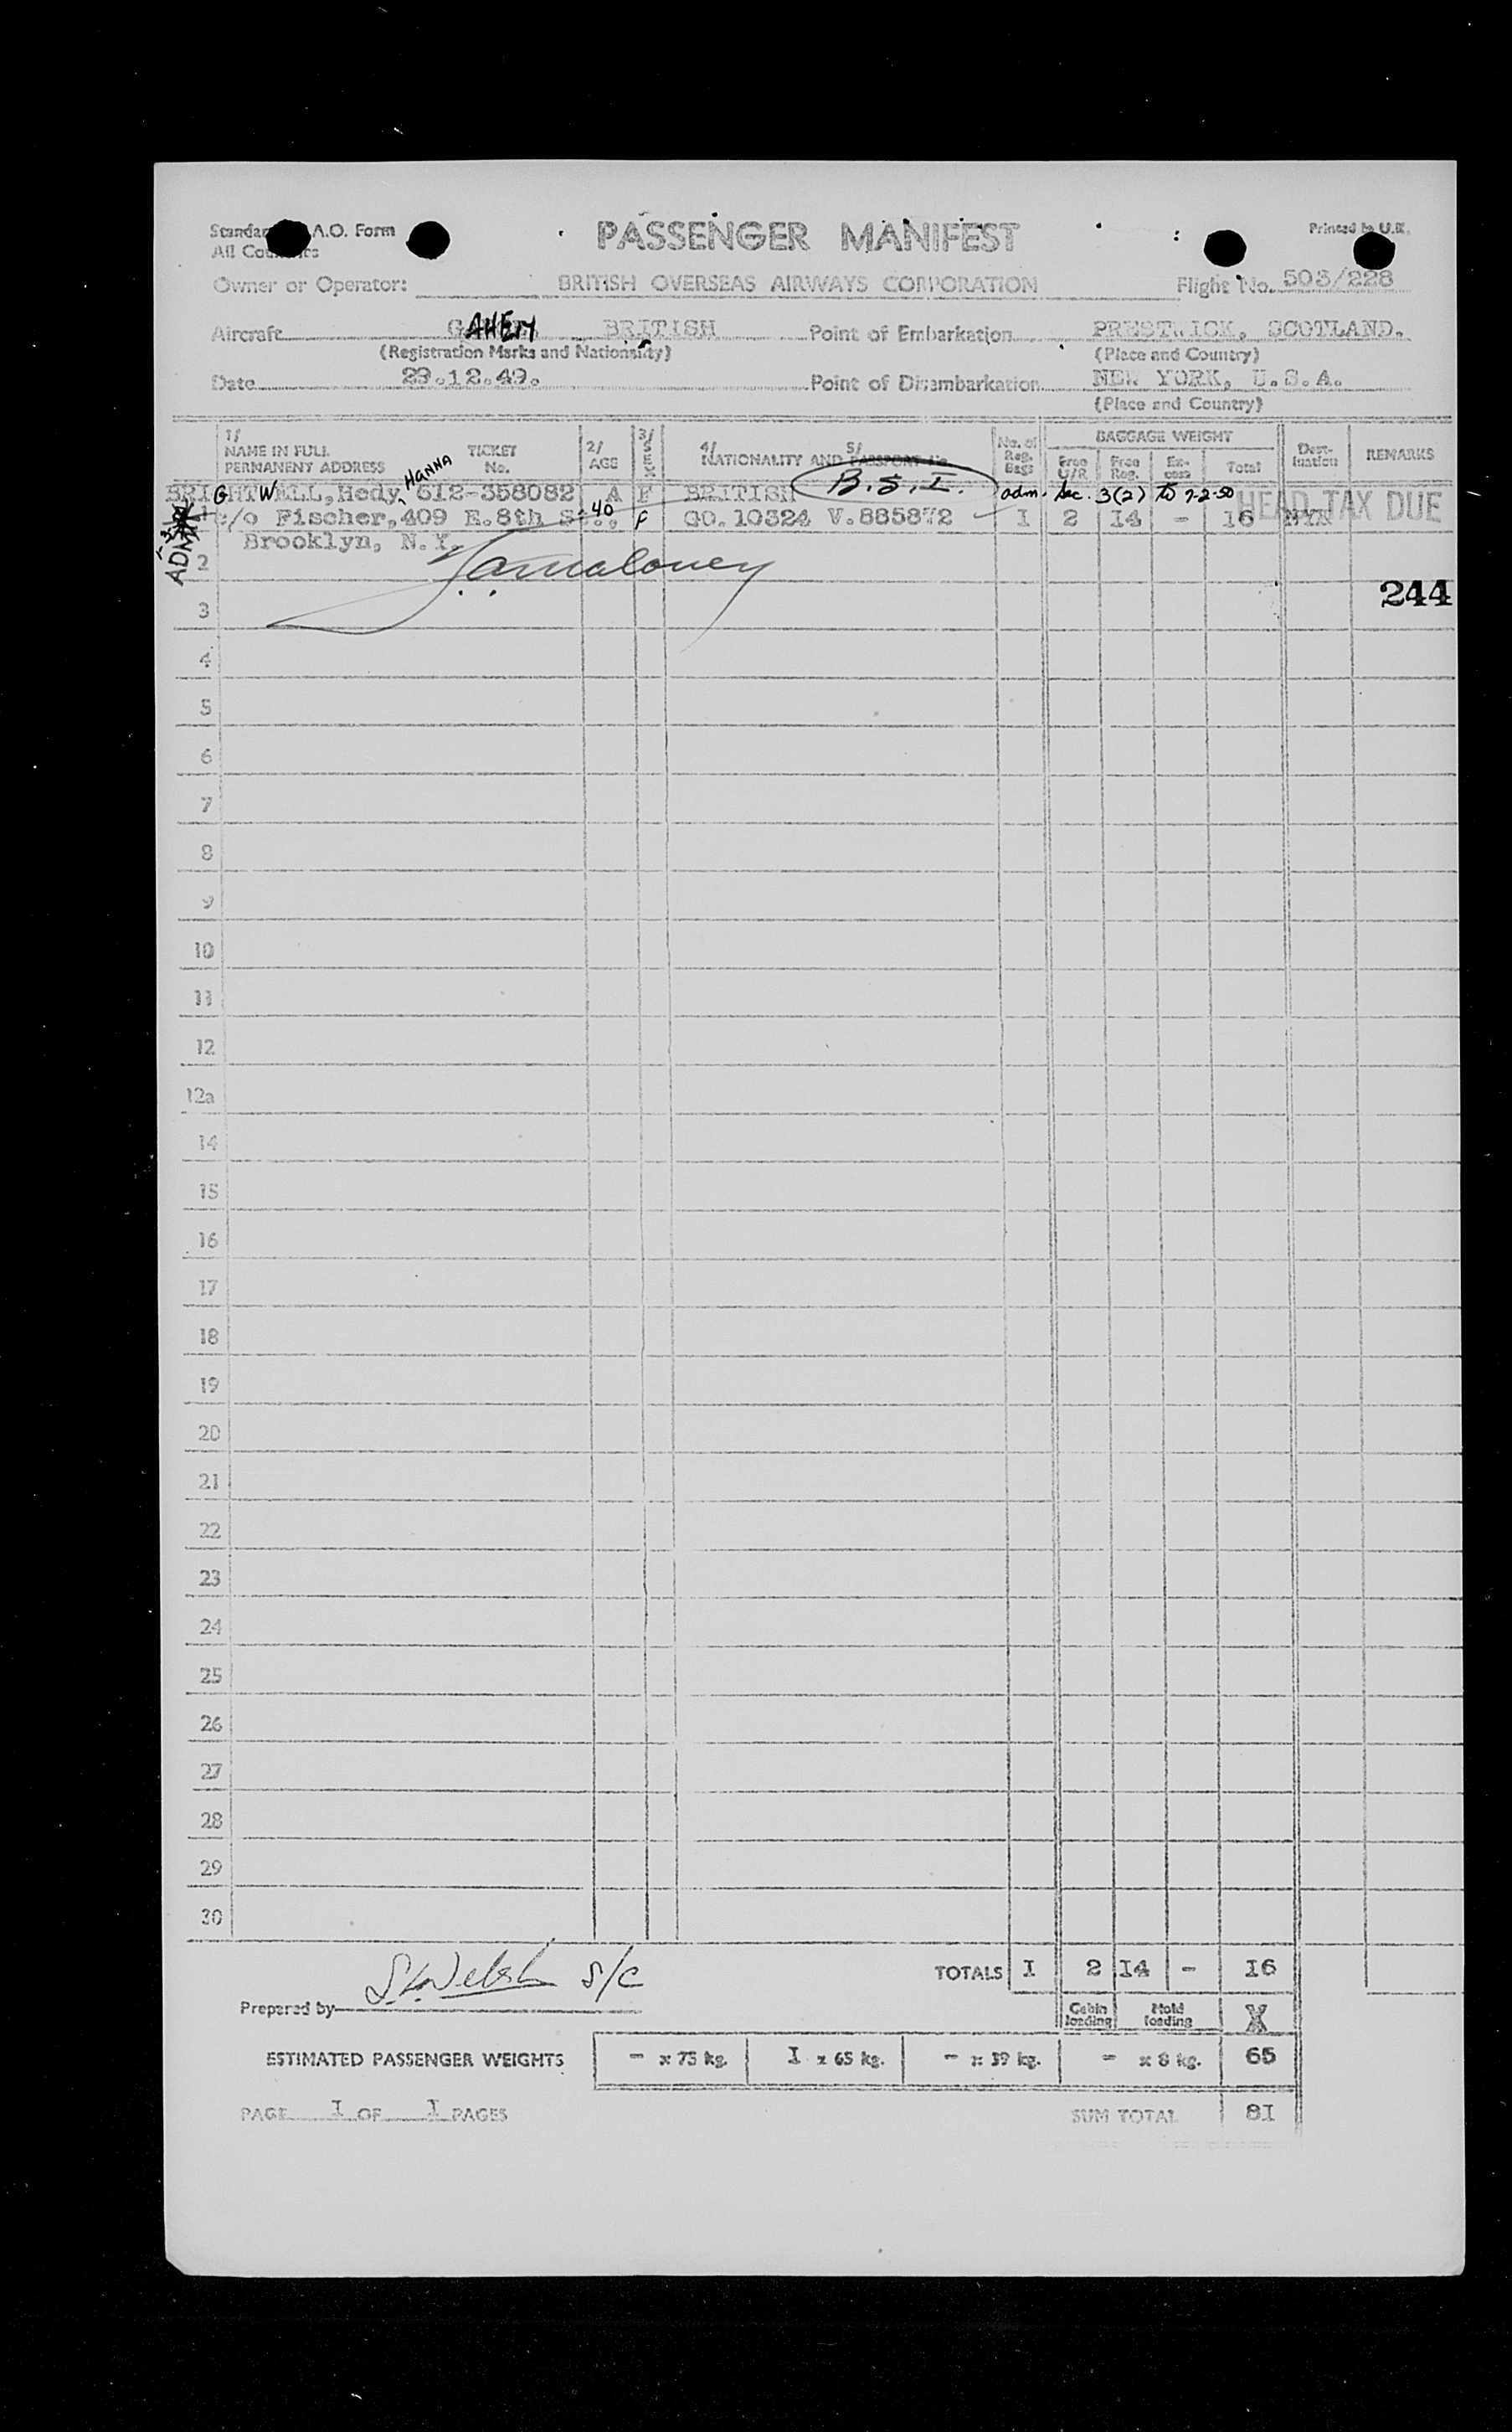 PASSENGER MANIFEST
A.O. Form
Printed in U.K.
Owner or Operator: BRITISH OVERSEAS AIRWAYS CORPORATION Flight No. 503/228
Aircraft BRITISH Point of Embarkation PRESTWICK, SCOTLAND.
(Registration Marks and Nationality) (Place and Country)
Date 29.12.49. Point of Disembarkation NEW YORK, U.S.A.
(Place and Country)
1/ NAME IN FULL PERMANENT ADDRESS TICKET No. 2/ AGE 3/ SEX 4/ NATIONALITY AND 5/ PASSPORT No. No. of Reg. Bags BAGGAGE WEIGHT Free U/R Free Reg. Ex-cess Total Dest-ination REMARKS
HANNA
BRIGHTWELL, Hedy, 612-358082 A F BRITISH B.S.I. adm. Sec. 3(2) to 7-2-50 HEAD TAX DUE
c/o Fischer, 409 E.8th St., 40 F GO.10324 V.885872 I 2 I4 - 16 NYK
Brooklyn, N.Y.
2
244
3
4
5
6
7
8
9
10
11
12
12a
14
15
16
17
18
19
20
21
22
23
24
25
26
27
28
29
30
TOTALS I 2 I4 - I6
Prepared by S/C
Cabin loading Hold loading X
ESTIMATED PASSENGER WEIGHTS - x 75 kg. I x 65 kg. - x 39 kg. - x 8 kg. 65
PAGE I OF I PAGES SUM TOTAL 8I